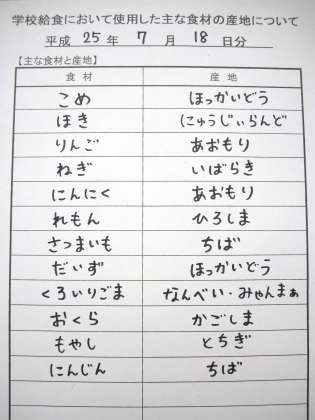 学校給食において使用した主な食材の産地について
平成 25 年 7 月 18 日分
【主な食材と産地】
食材 産地
こめ ほっかいどう
ほき にゅうじぃらんど
りんご あおもり
ねぎ いばらき
にんにく あおもり
れもん ひろしま
さつまいも ちば
だいず ほっかいどう
くろいりごま なんべい・みゃんまぁ
おくら かごしま
もやし とちぎ
にんじん ちば